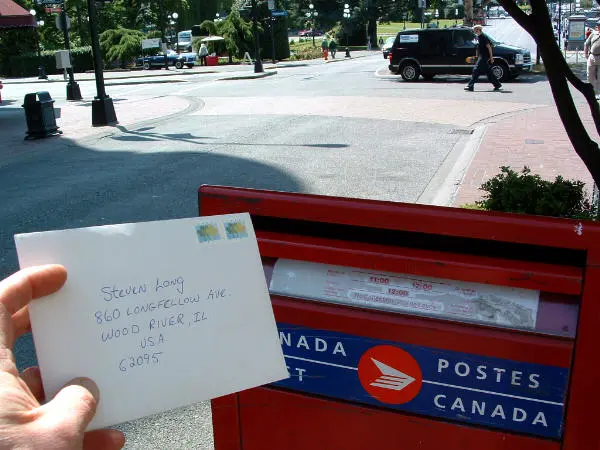 Steven Long
860 LONGFELLOW AVE.
WOOD RIVER, IL
USA
62095
11:00 12:00
18:00
NADA
ST
POSTES
CANADA